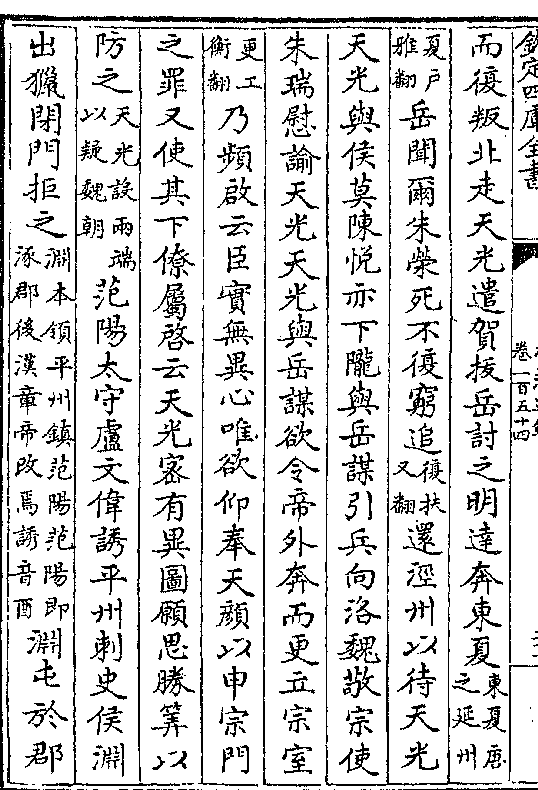 欽定四庫全書
卷一百五十四
而復叛北走天光遣賀拔岳討之明達奔東夏東夏唐之延州
夏戶雅翻岳聞爾朱榮死不復窮追復扶又翻還涇州以待天光
天光與侯莫陳悅亦下隴與岳謀引兵向洛魏敬宗使
朱瑞慰諭天光天光與岳謀欲令帝外奔而更立宗室
更工衡翻乃頻啟云臣實無異心唯欲仰奉天顏以申宗門
之罪又使其下僚屬啓云天光密有異圖願思勝筭以
防之天光設兩端以疑魏朝范陽太守盧文偉誘平州刺史侯淵
出獵閉門拒之淵本領平州鎮范陽范陽即涿郡後漢章帝改焉誘音酉淵屯於郡